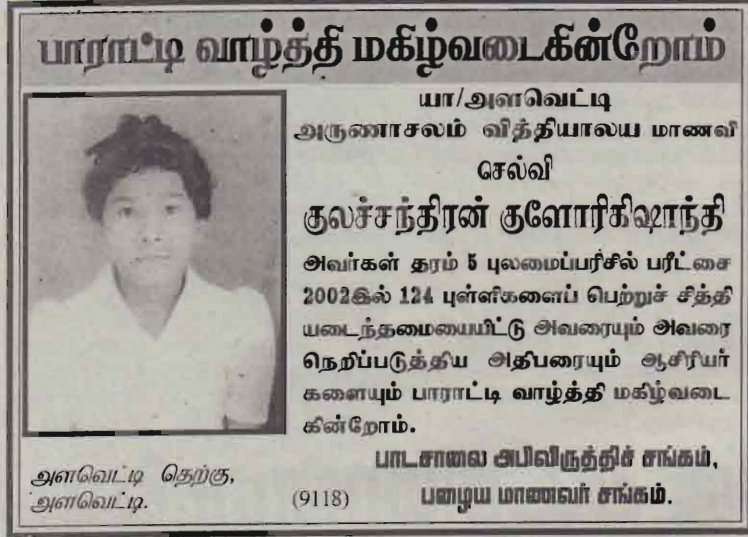 பாராட்டி வாழ்த்தி மகிழ்வடைகின்றோம்
யா/அளவெட்டி
அருணாசலம் வித்தியாலய மாணவி
செல்வி
குலச்சந்திரன் குளோரிகிஷாந்தி
அவர்கள் தரம் 5 புலமைப்பரிசில் பரீட்சை
2002இல் 124 புள்ளிகளைப் பெற்றுச் சித்தி
யடைந்தமையையிட்டு அவரையும் அவரை
நெறிப்படுத்திய அதிபரையும் ஆசிரியர்
களையும் பாராட்டி வாழ்த்தி மகிழ்வடை
கின்றோம்.
பாடசாலை அபிவிருத்திச் சங்கம்,
பழைய மாணவர் சங்கம்.
அளவெட்டி தெற்கு,
அளவெட்டி.
(9118)